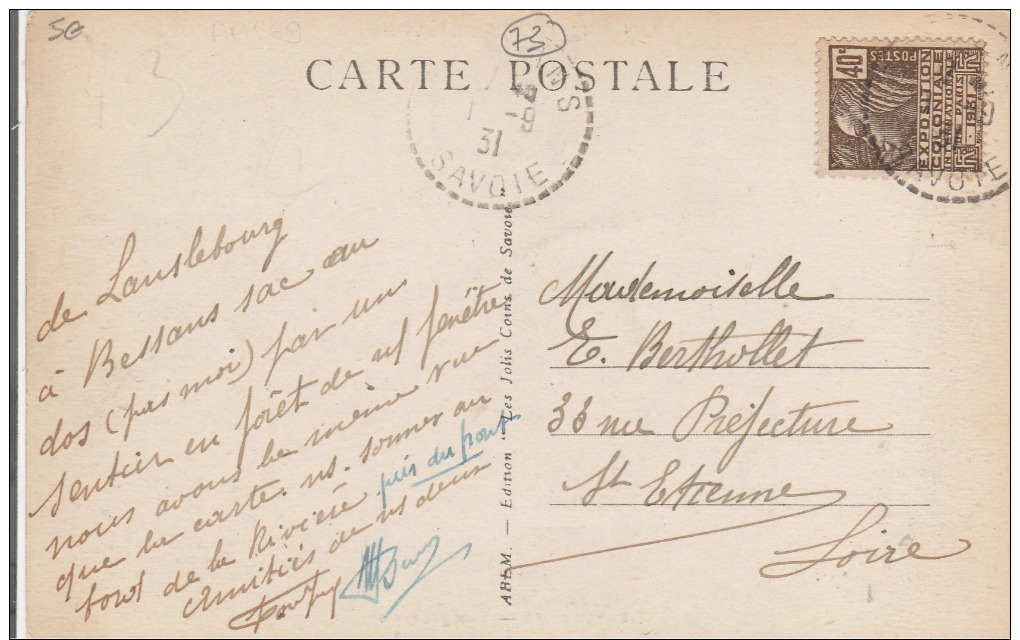 5E
73
CARTE POSTALE
-9
31
SAVOIE
40c
POSTES
EXPOSITION
COLONIALE
INTERNATIONALE
PARIS
1931
SAVOIE
de Lanslebourg
à Bessans sac au
dos (pas moi) par un
sentier en forêt de ns fenêtre
nous avons la même vue
que la carte. ns. sommes au
fond de la Rivière près du pont
Amitiés de ns deux
ABEM. — Edition "Les Jolis Coins de Savoie
Mademoiselle
E. Berthollet
33 rue Préfecture
St Etienne
Loire